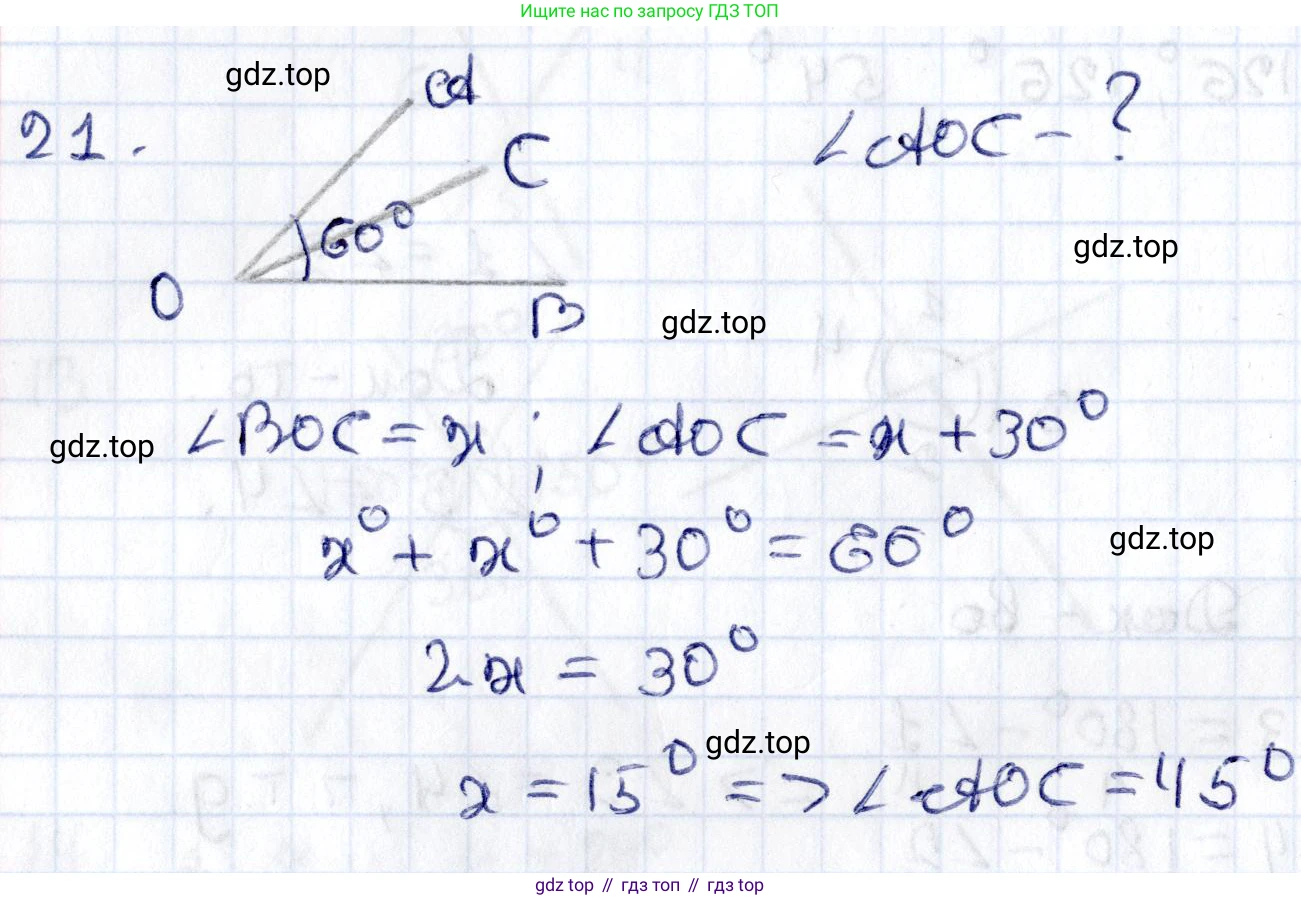 Ищите нас по запросу ГДЗ ТОП
gdz.top
A
21.
C
∠AOC - ?
60°
gdz.top
O
B
gdz.top
gdz.top
∠BOC = x ; ∠AOC = x + 30°
x° + x° + 30° = 60°
gdz.top
2x = 30°
gdz.top
x = 15° => ∠AOC = 45°
gdz top // гдз топ // gdz top